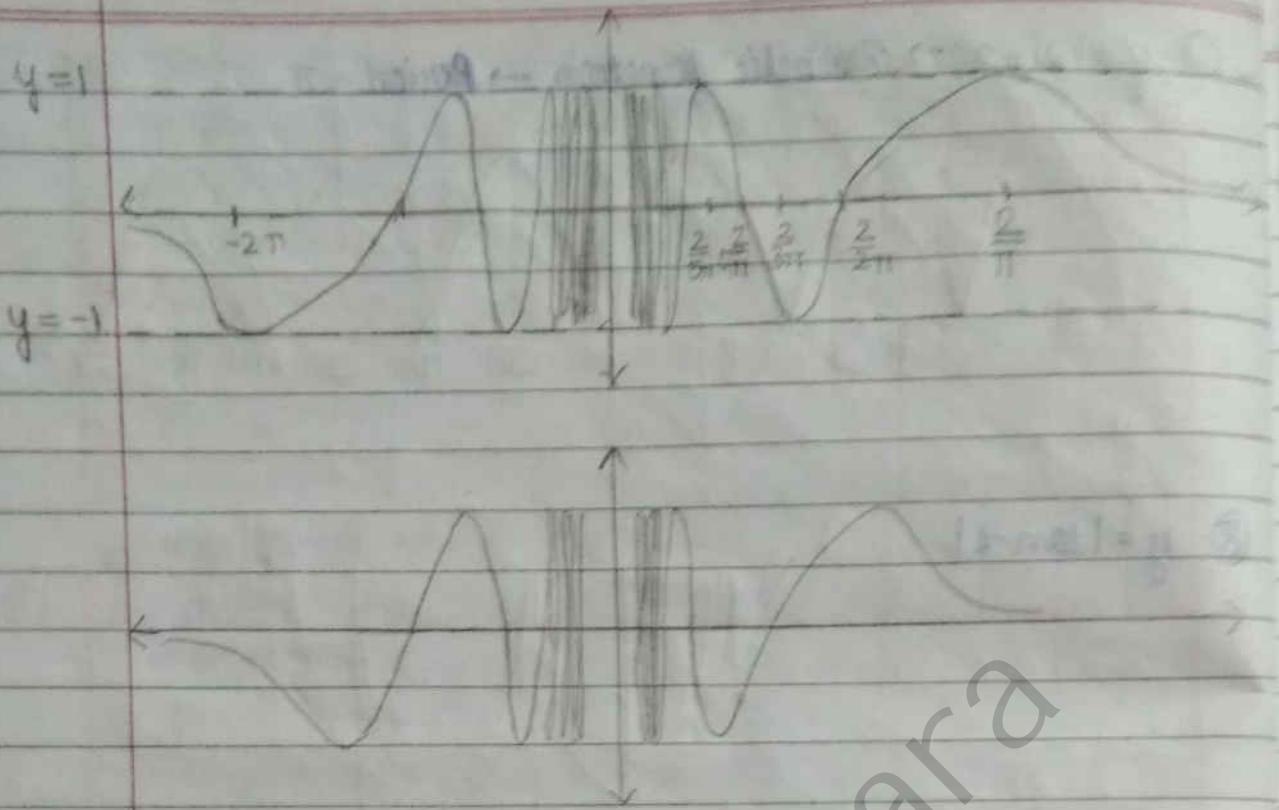 y = 1
-2π
2/5π 2/π 2/3π 2/2π 2/π
y = -1
ara